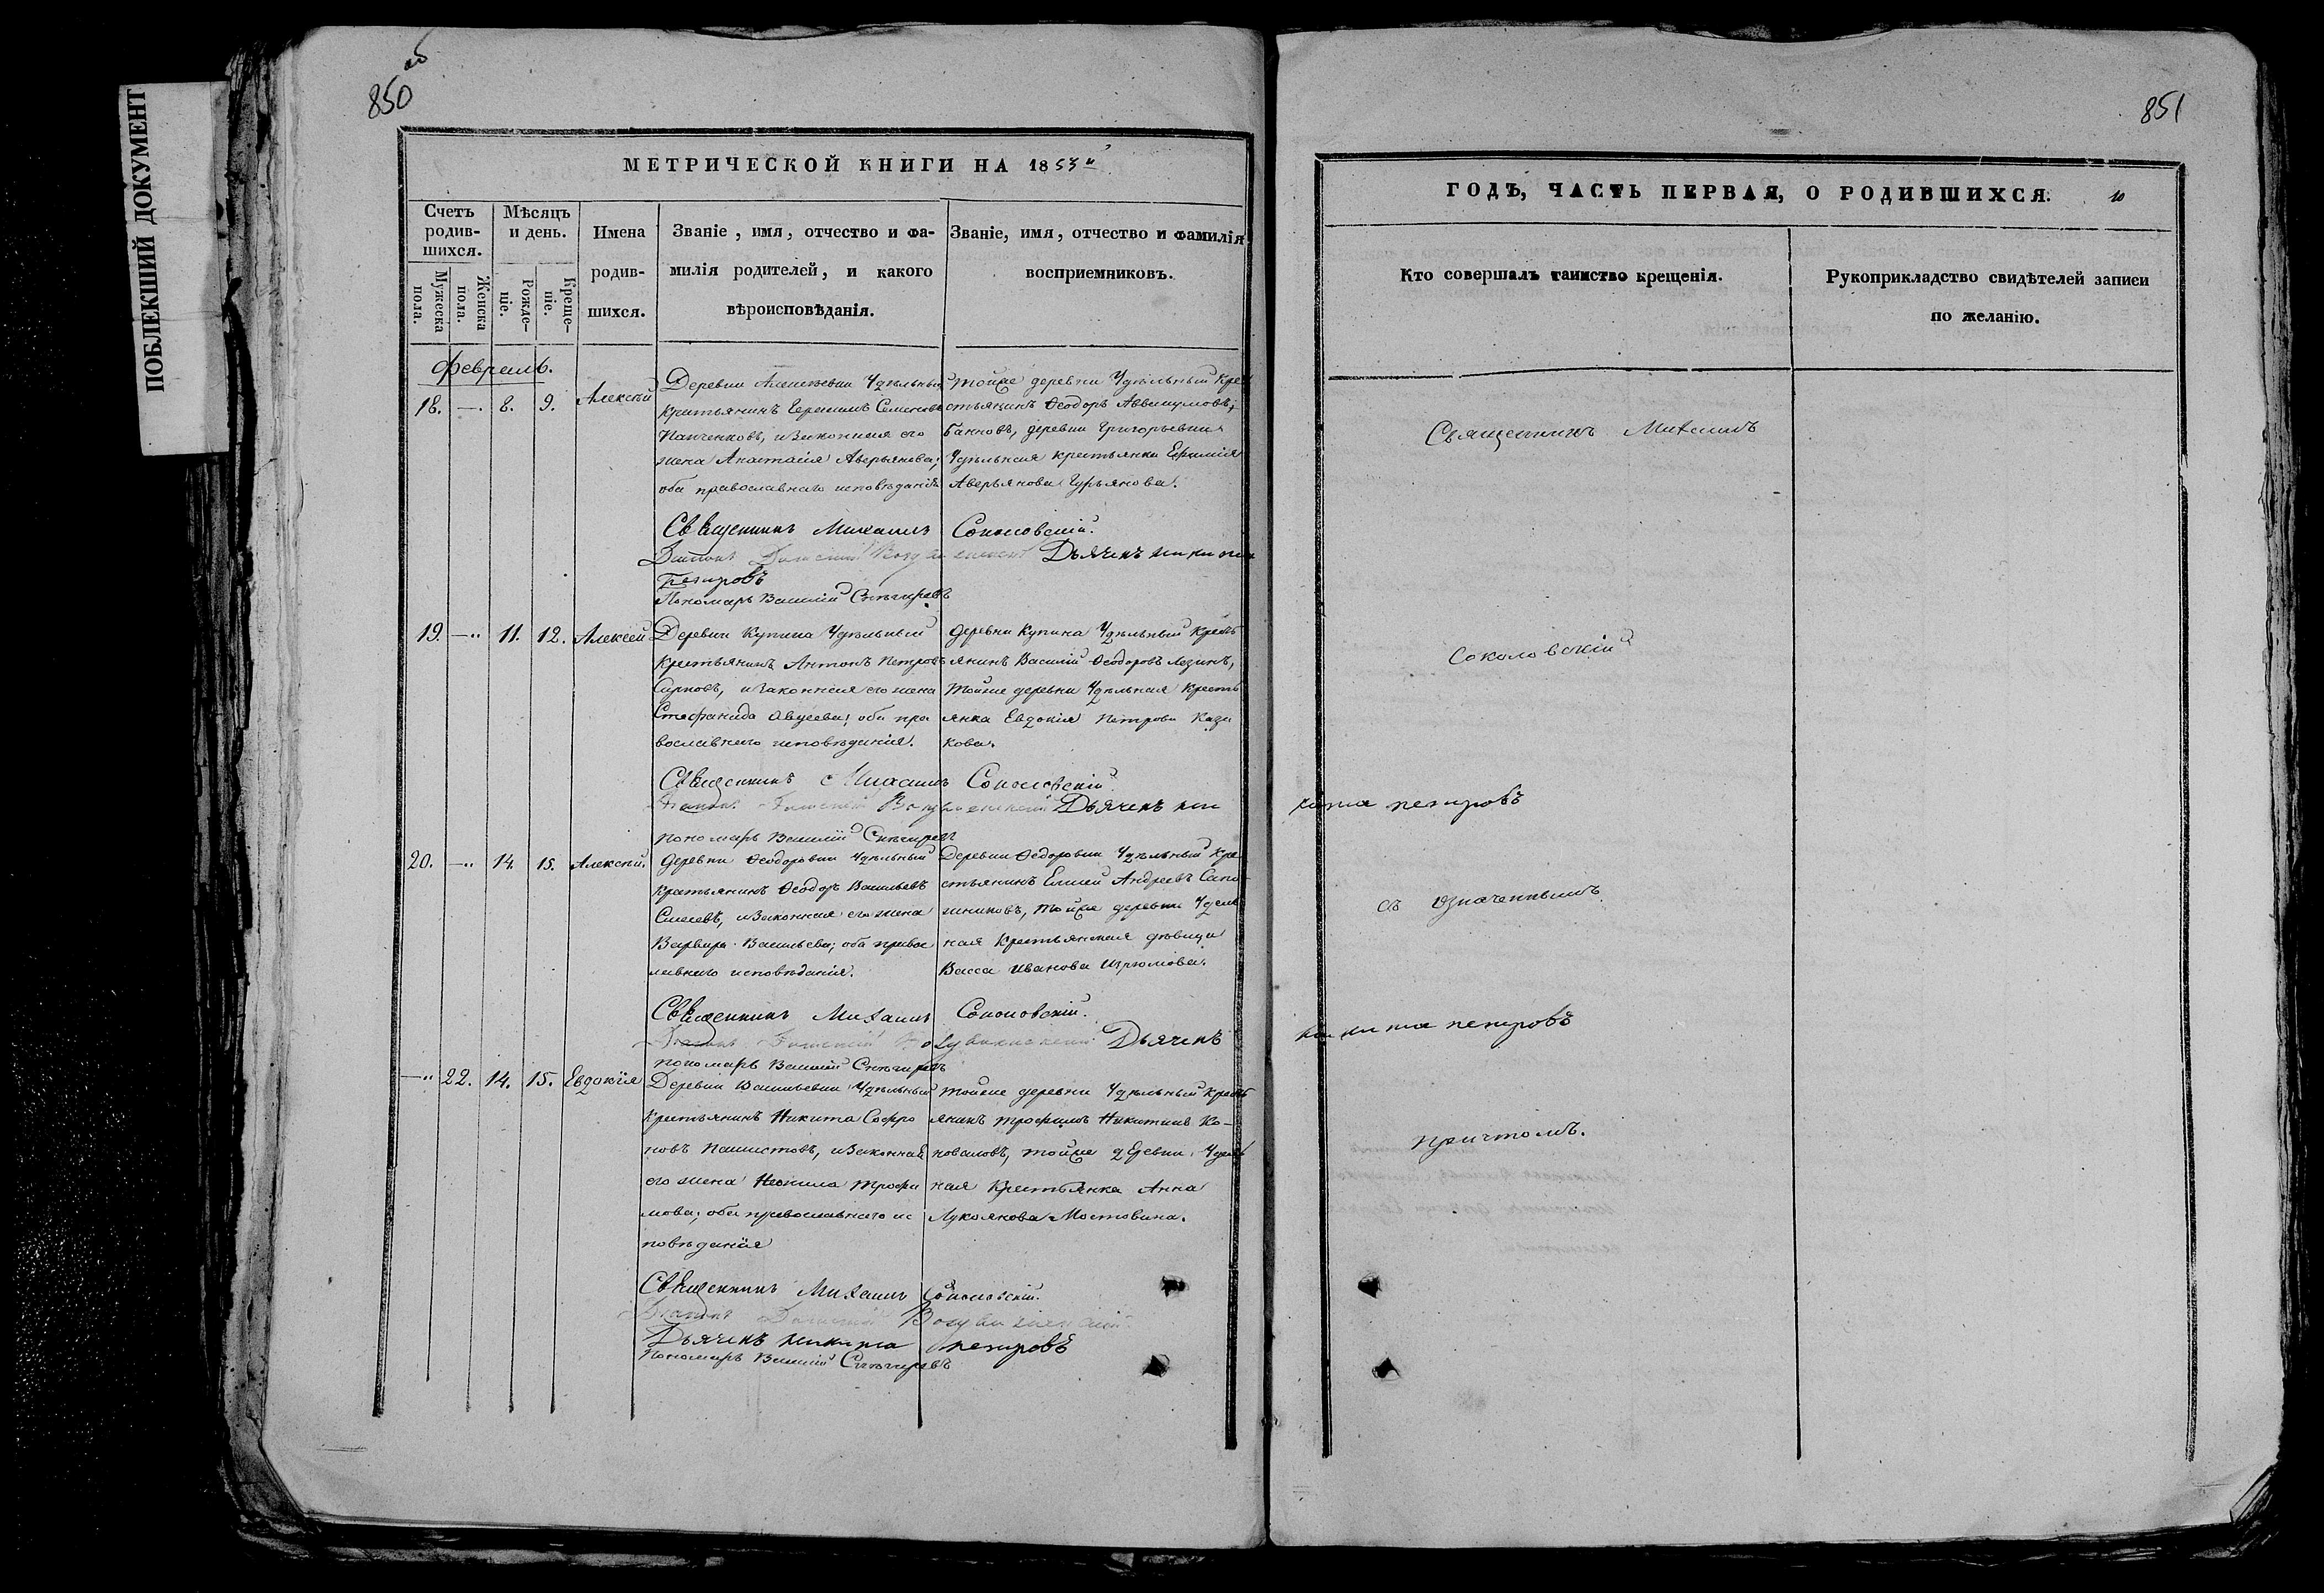 ПОБЛЕКШИЙ ДОКУМЕНТ
850 об
МЕТРИЧЕСКОЙ КНИГИ НА 1853й
Счетъ родив-шихся.
Мѣсяцъ и день.
Имена родив-шихся.
Званіе, имя, отчество и фа-
милія родителей, и какого
вѣроисповѣданія.
Званіе, имя, отчество и фамилія
восприемниковъ.
Мужеска пола.
Женска пола.
Рожде-ніе.
Креще-ніе.
Февраль.
18. —. 8. 9. Алексѣй
Деревни Удѣльный
крестьянинъ Герасимъ Семеновъ
Панченковъ, изаконная его
жена Анастасія Аверьянова;
оба православнаго исповѣданія
тойже деревни Удѣльный кре
стьянинъ Ѳеодоръ Аввакумовъ
деревни Григорьевки
Удѣльная крестьянка Ефимія
Аверьянова Гурьянова.
Священникъ Михаилъ Соколовскій.
Дьячекъ Никита
Петровъ
Пономарь Василій Снѣгиревъ
19. —„ 11. 12. Алексѣй
Деревни Купина Удѣльный
крестьянинъ Антонъ Петровъ
изаконная его жена
Стефанида Авдеева; оба пра
вославнаго исповѣданія.
деревни Купина Удѣльный крест
янинъ Василій Ѳеодоровъ Лезинъ,
тойже деревни Удѣльная крест
янка Евдокія Петрова Каза
кова.
Священникъ Михаилъ Соколовскій.
Дьячекъ ни
Пономарь Василій Снѣгиревъ
20. —„ 14. 15. Алексѣй.
Деревни Ѳеодоровки Удѣльный
крестьянинъ Ѳеодоръ Васильевъ
изаконная его жена
Варвара Васильева; оба правос
лавнаго исповѣданія.
Деревни Ѳедоровки Удѣльный кре
стьянинъ Елисей Андреевъ Сапо
жниковъ, тойже деревни Удел
ная крестьянская дѣвица
Васса Иванова Изюмова.
Священникъ Михаилъ Соколовскій.
Дьячекъ
Пономарь Василій Снѣгиревъ
—„ 22. 14. 15. Евдокія
Деревни Васильевки Удѣльный
крестьянинъ Никита Софро
новъ изаконная
его жена Неонила Трофи
мова; оба православнаго ис
повѣданія
тойже деревни Удѣльный крест
янинъ Трофимъ Никитинъ Ко-
новаловъ, тойже деревни Удел
ная Крестьянка Анна
Лукоянова Мостовина.
Священникъ Михаилъ Соколовскій.
Дьячекъ Никита Петровъ
Пономарь Василій Снѣгиревъ
851
ГОДЪ, ЧАСТЬ ПЕРВАЯ, О РОДИВШИХСЯ. 10
Кто совершалъ таинство крещенія.
Рукоприкладство свидѣтелей записи
по желанію.
Священникъ Михаилъ
Соколовскій
кита Петровъ
съ означеннымъ
никита Петровъ
причтомъ.